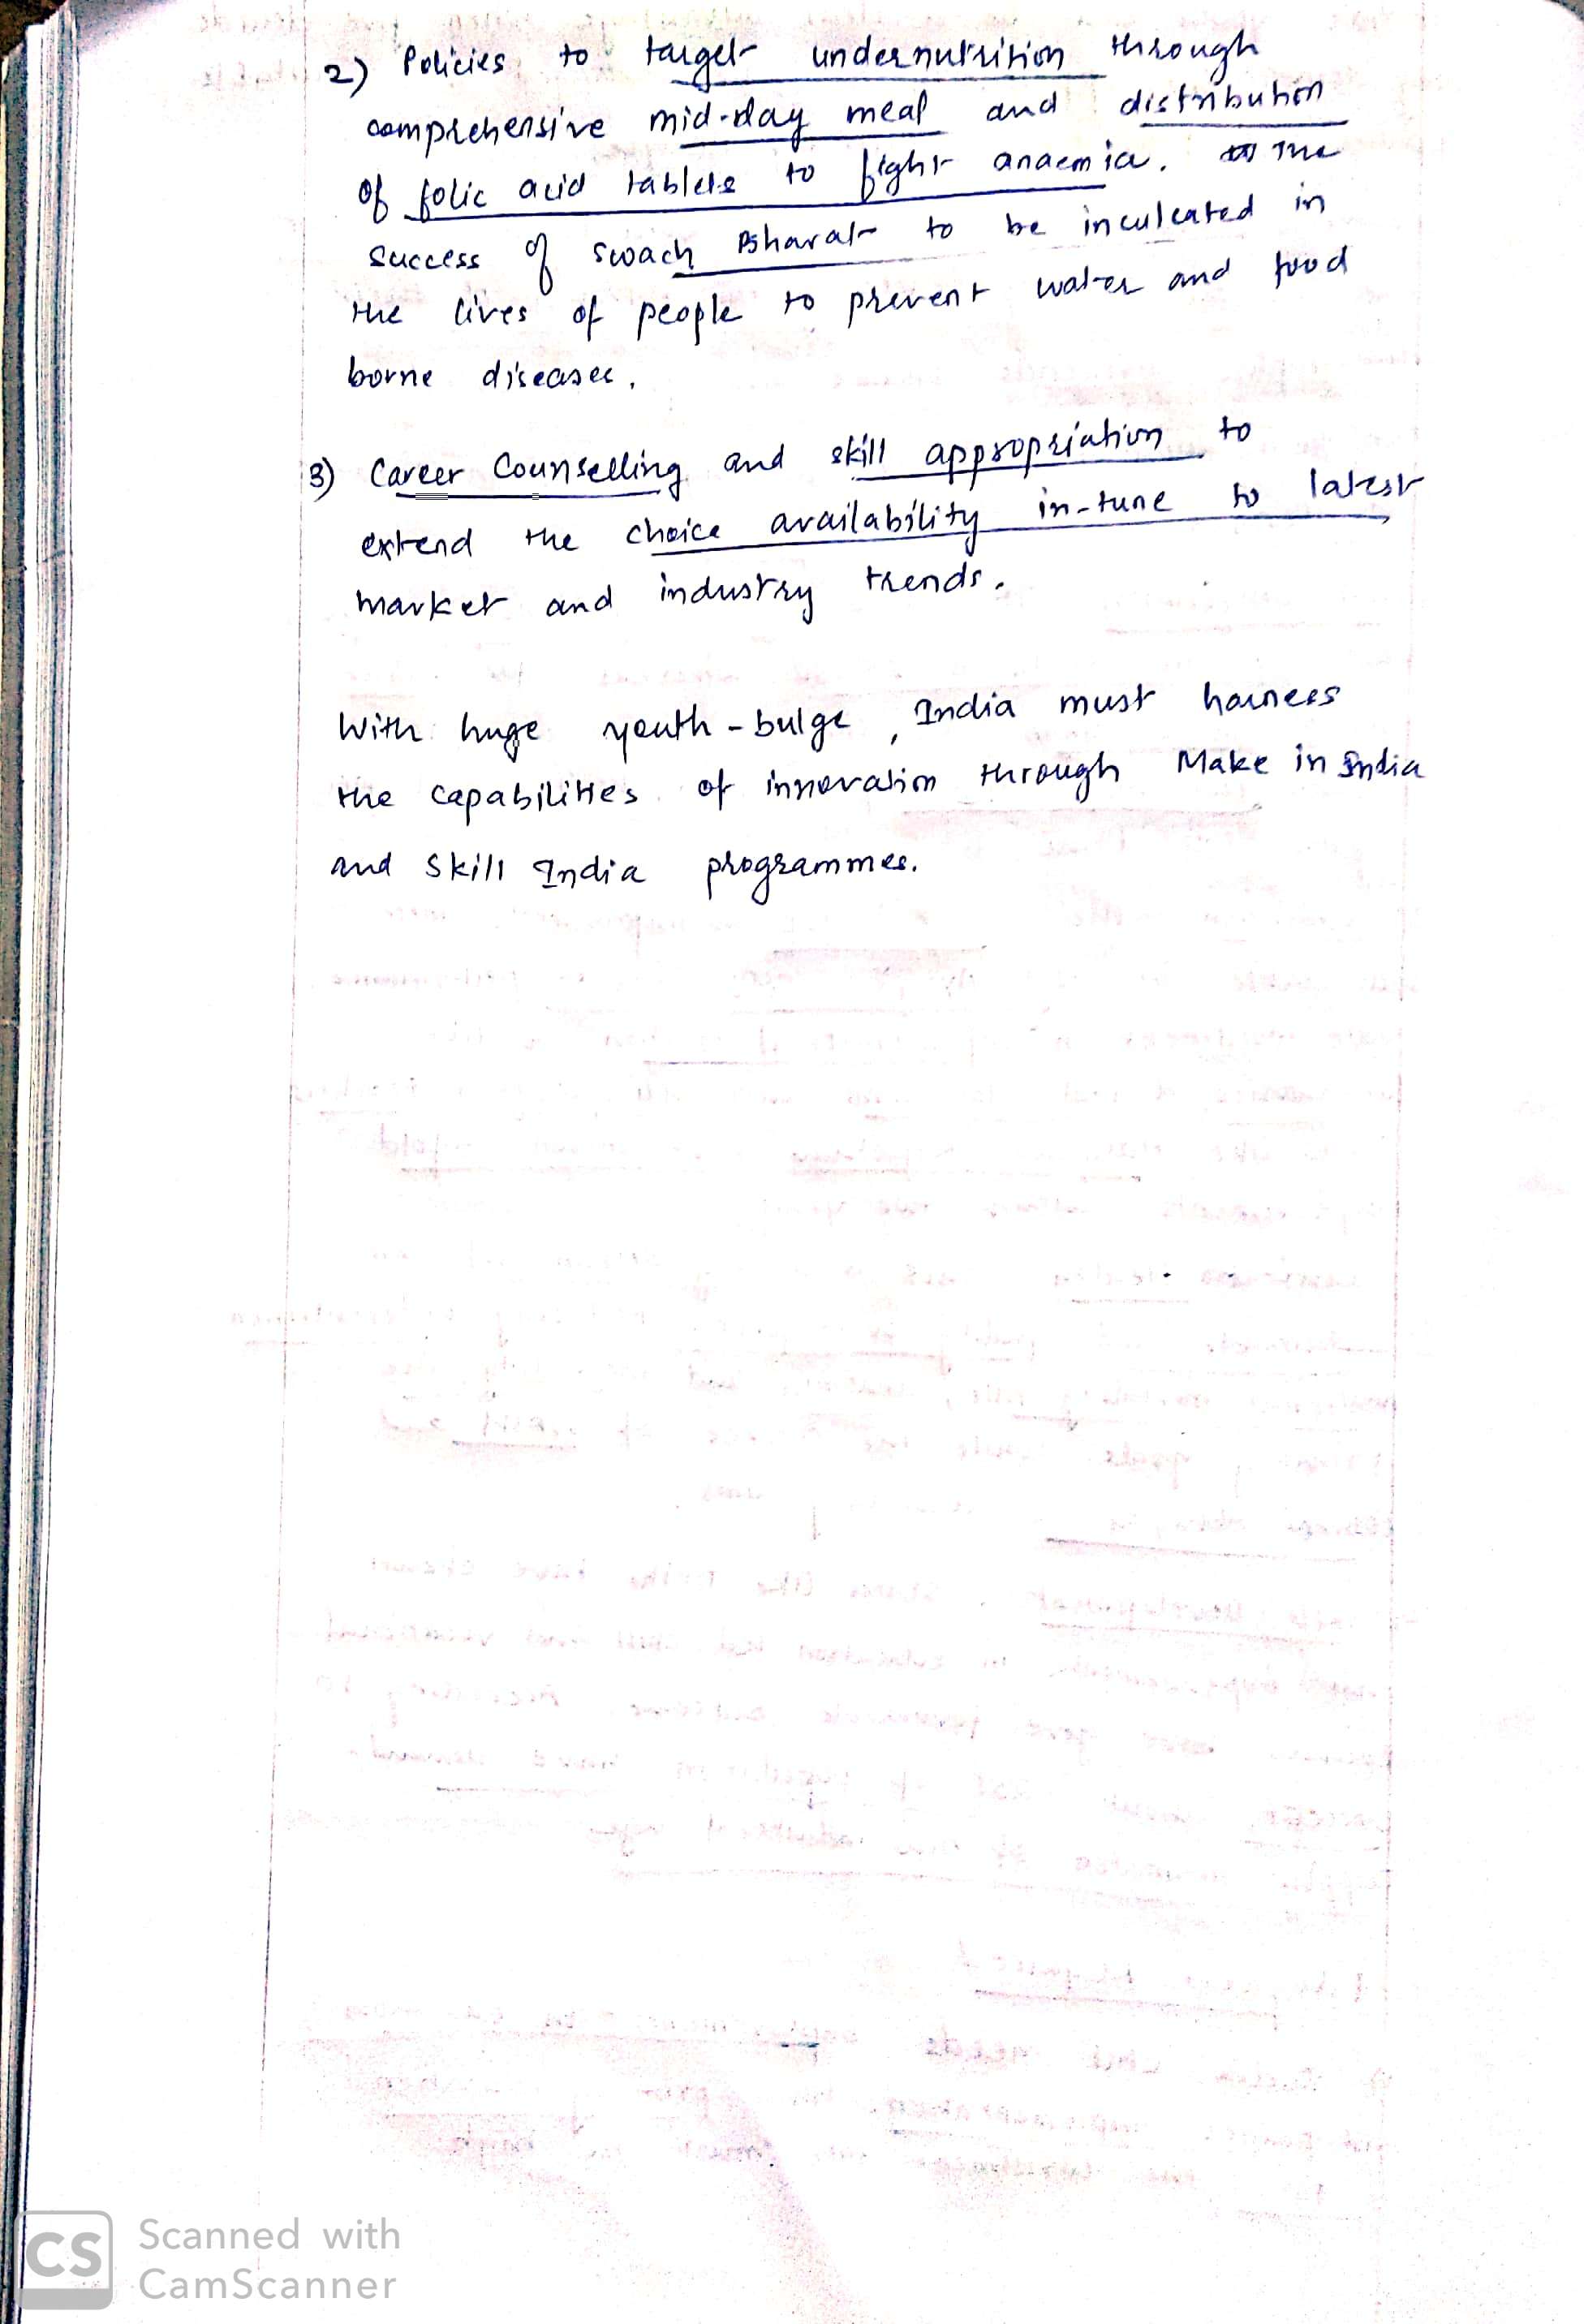 2) Policies to target undernutrition through
comprehensive mid-day meal and distribution
of folic acid tablets to fight anaemia. The
success of swach Bharat to be inculcated in
the lives of people to prevent water and food
borne diseases.
3) Career Counselling and skill appropriation to
extend the choice availability in-tune to latest
market and industry trends.
With huge youth-bulge, India must harness
the capabilities of innovation through Make in India
and Skill India programmes.
CS Scanned with
CamScanner